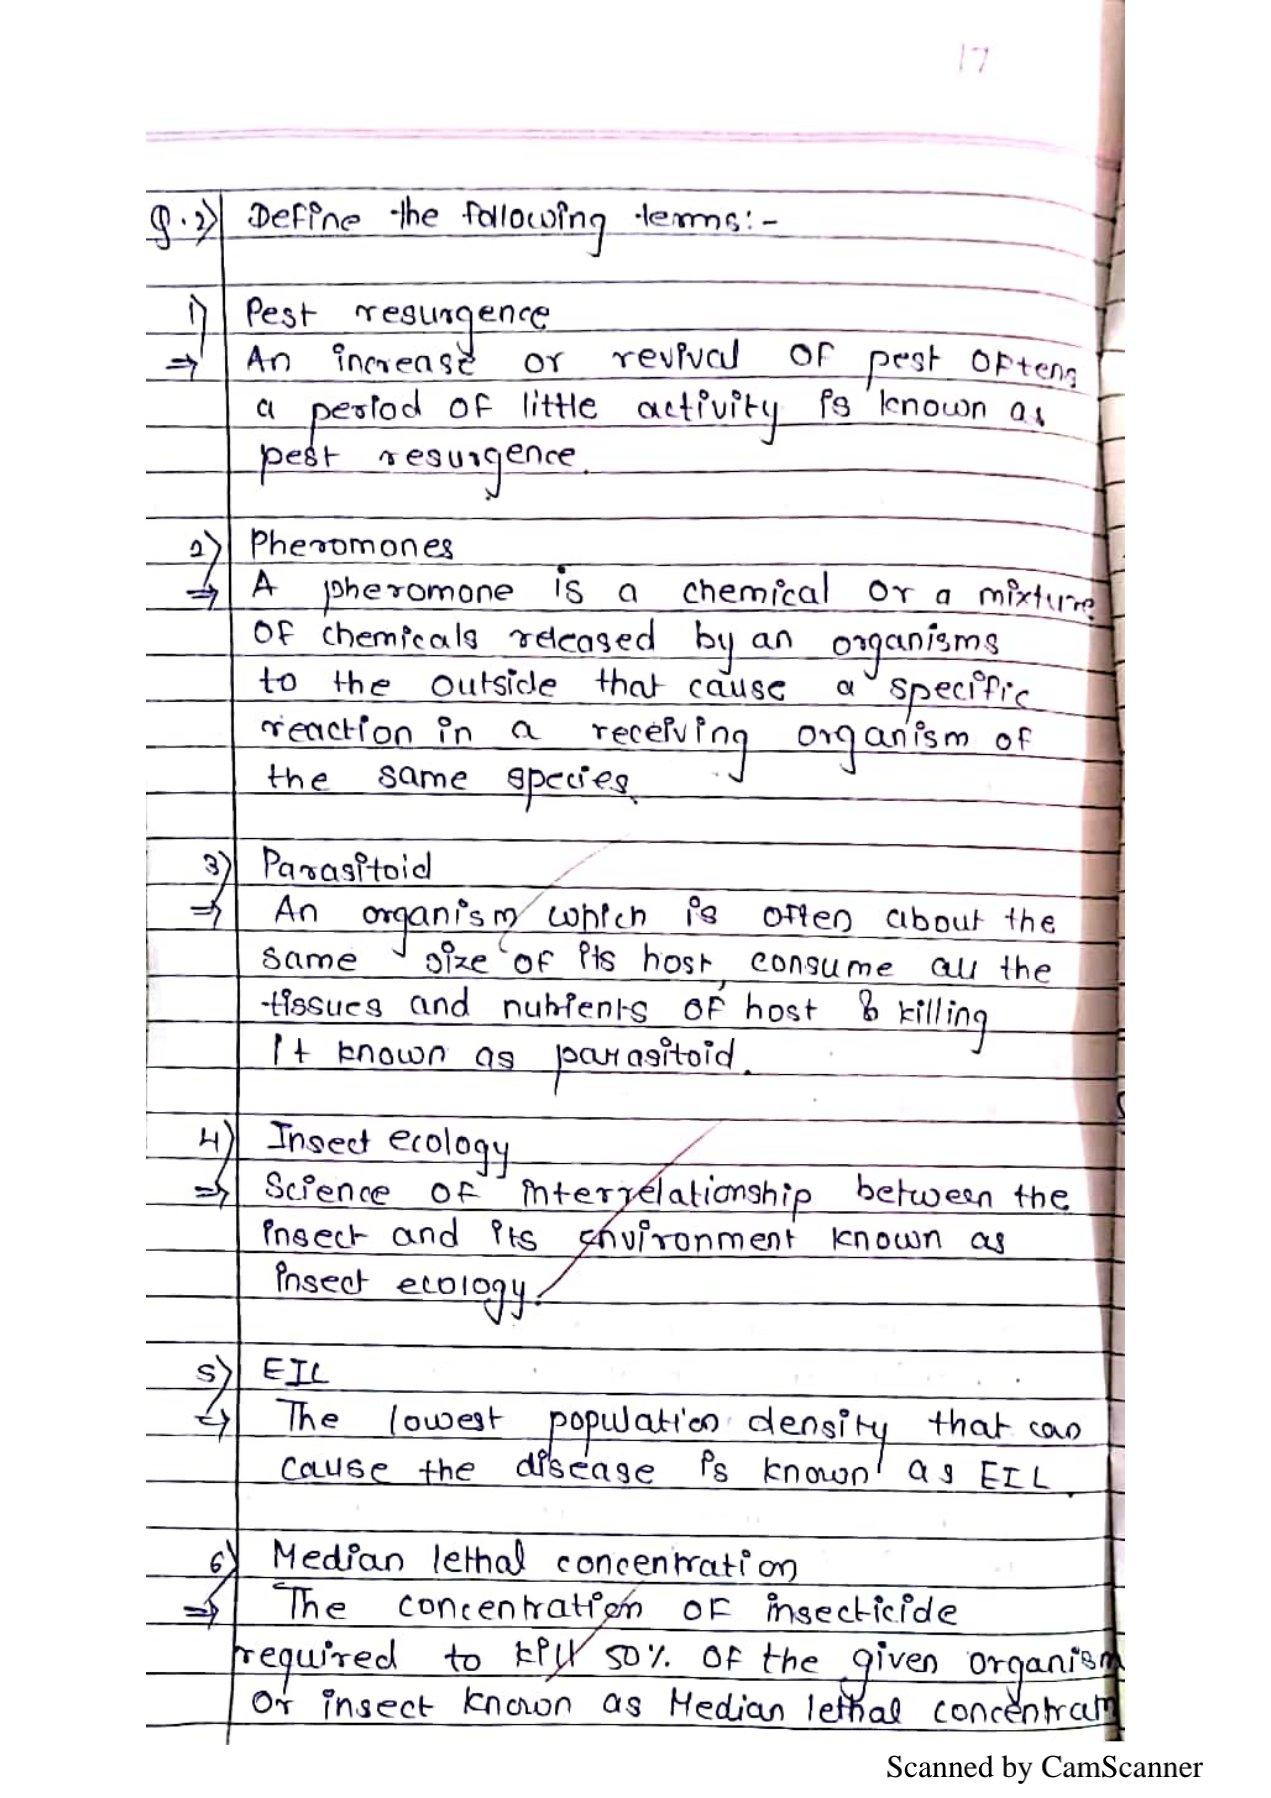 17
Q.2) Define the following terms:-
1) Pest resurgence
⇒ An increase or revival of pest oftens
a period of little activity is known as
pest resurgence.
2) Pheromones
⇒ A pheromone is a chemical or a mixture
of chemicals released by an organisms
to the outside that cause a specific
reaction in a receiving organism of
the same species.
3) Parasitoid
⇒ An organism which is often about the
same size of its host, consume all the
tissues and nutrients of host & killing
It known as parasitoid.
4) Insect ecology
⇒ Science of interrelationship between the
insect and its environment known as
insect ecology.
5) EIL
⇒ The lowest population density that can
cause the disease is known as EIL.
6) Median lethal concentration
⇒ The concentration of insecticide
required to kill 50% of the given organism
or insect known as Median lethal concentrat
Scanned by CamScanner